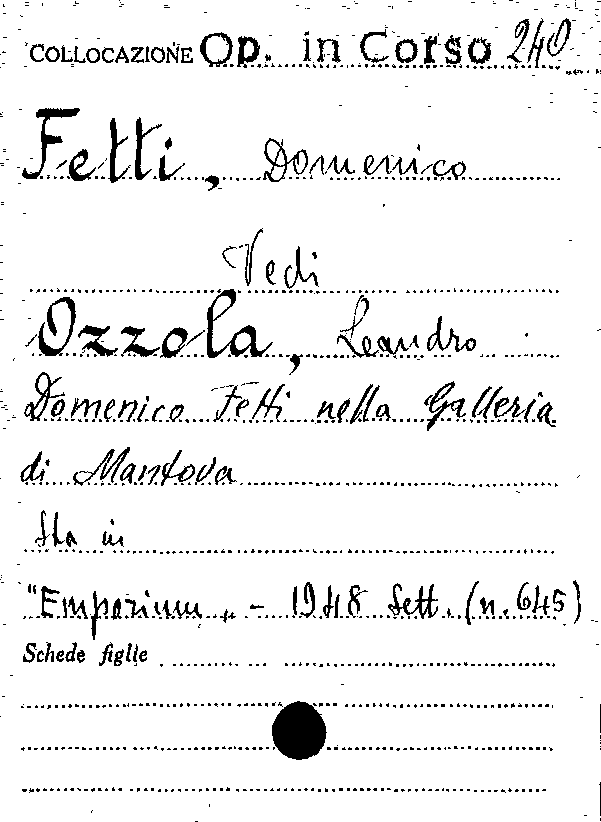 COLLOCAZIONE Op. in Corso 240
Fetti, Domenico
Vedi
Ozzola, Leandro
Domenico Fetti nella Galleria
di Mantova
Sta in
"Emporium„ - 1948 Sett. (n. 645)
Schede figlie